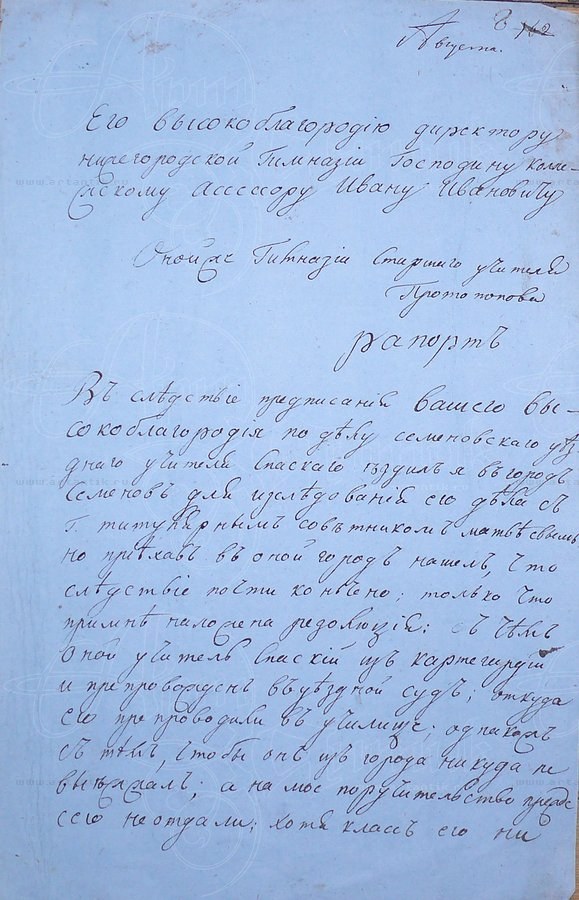 8 162
Августа.
Его высокоблагородію директору
нижегородской Гимназіи Господину колле-
жскому Ассесору Ивану Ивановичу
Оной же Гимназіи Старшаго учителя
Протопопова
рапортъ
Въ слѣдствіе предписанія вашего вы-
сокоблагородія по дѣлу семеновскаго уѣз-
днаго учителя Спаскаго ѣздилъ я въ городъ
Семеновъ для изслѣдованія его дѣла съ
Г. титулярнымъ совѣтникомъ
но пріѣхавъ въ оной городъ нашелъ, что
слѣдствіе почти кончено; только что
примнѣ наложена резолюція: съ чѣмъ
Оной учитель Спаскій изъ
и препровожденъ въ уѣздной судъ; откуда
его препроводили въ училище; однакожъ
съ тѣмъ, чтобы онъ изъ города никуда не
выѣзжалъ; а на мое поручительство
сего не отдали; хотя классъ его ни